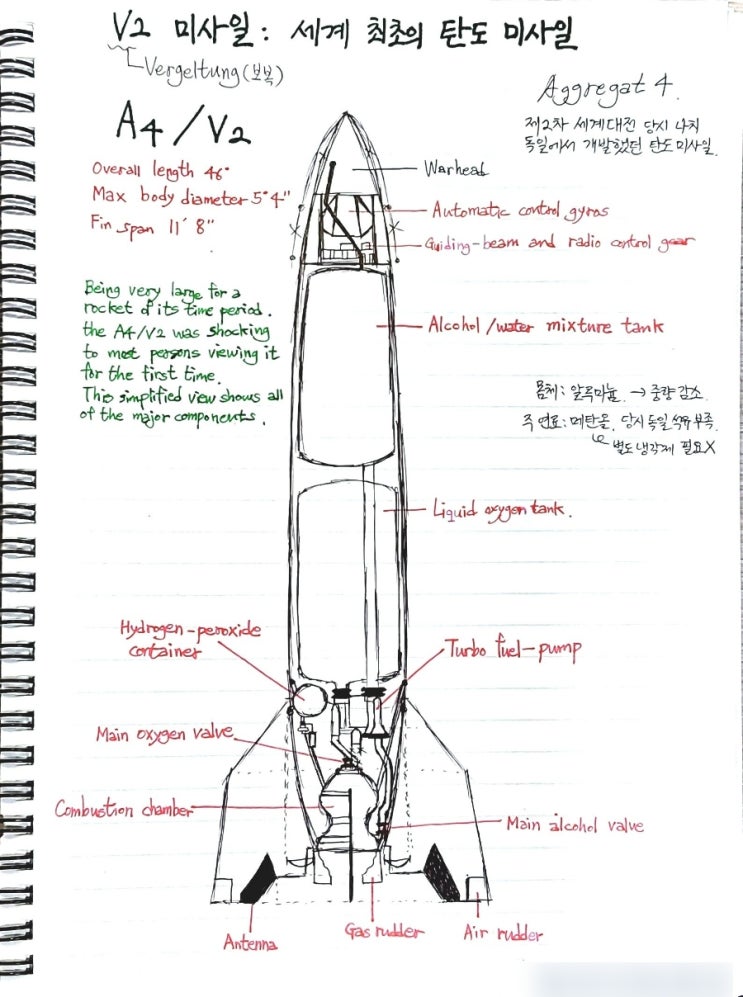 V2 미사일: 세계 최초의 탄도 미사일
Vergeltung(보복)
Aggregat 4.
제2차 세계대전 당시 나치
독일에서 개발했던 탄도미사일.
A4/V2
Overall length 46"
Max body diameter 5"4"
Fin span 11' 8"
Warhead
Automatic control gyros
Guiding-beam and radio control gear
Being very large for a
rocket of its time period.
the A4/V2 was shocking
to most persons viewing it
for the first time.
This simplified view shows all
of the major components.
Alcohol/water mixture tank
몸체: 알루미늄. → 중량 감소.
주 연료: 메탄올. 당시 독일 석유 부족.
별도 냉각제 필요X
Liquid oxygen tank.
Hydrogen-peroxide
container
Turbo fuel-pump
Main oxygen valve
Combustion chamber
Main alcohol valve
Antenna
Gas rudder
Air rudder